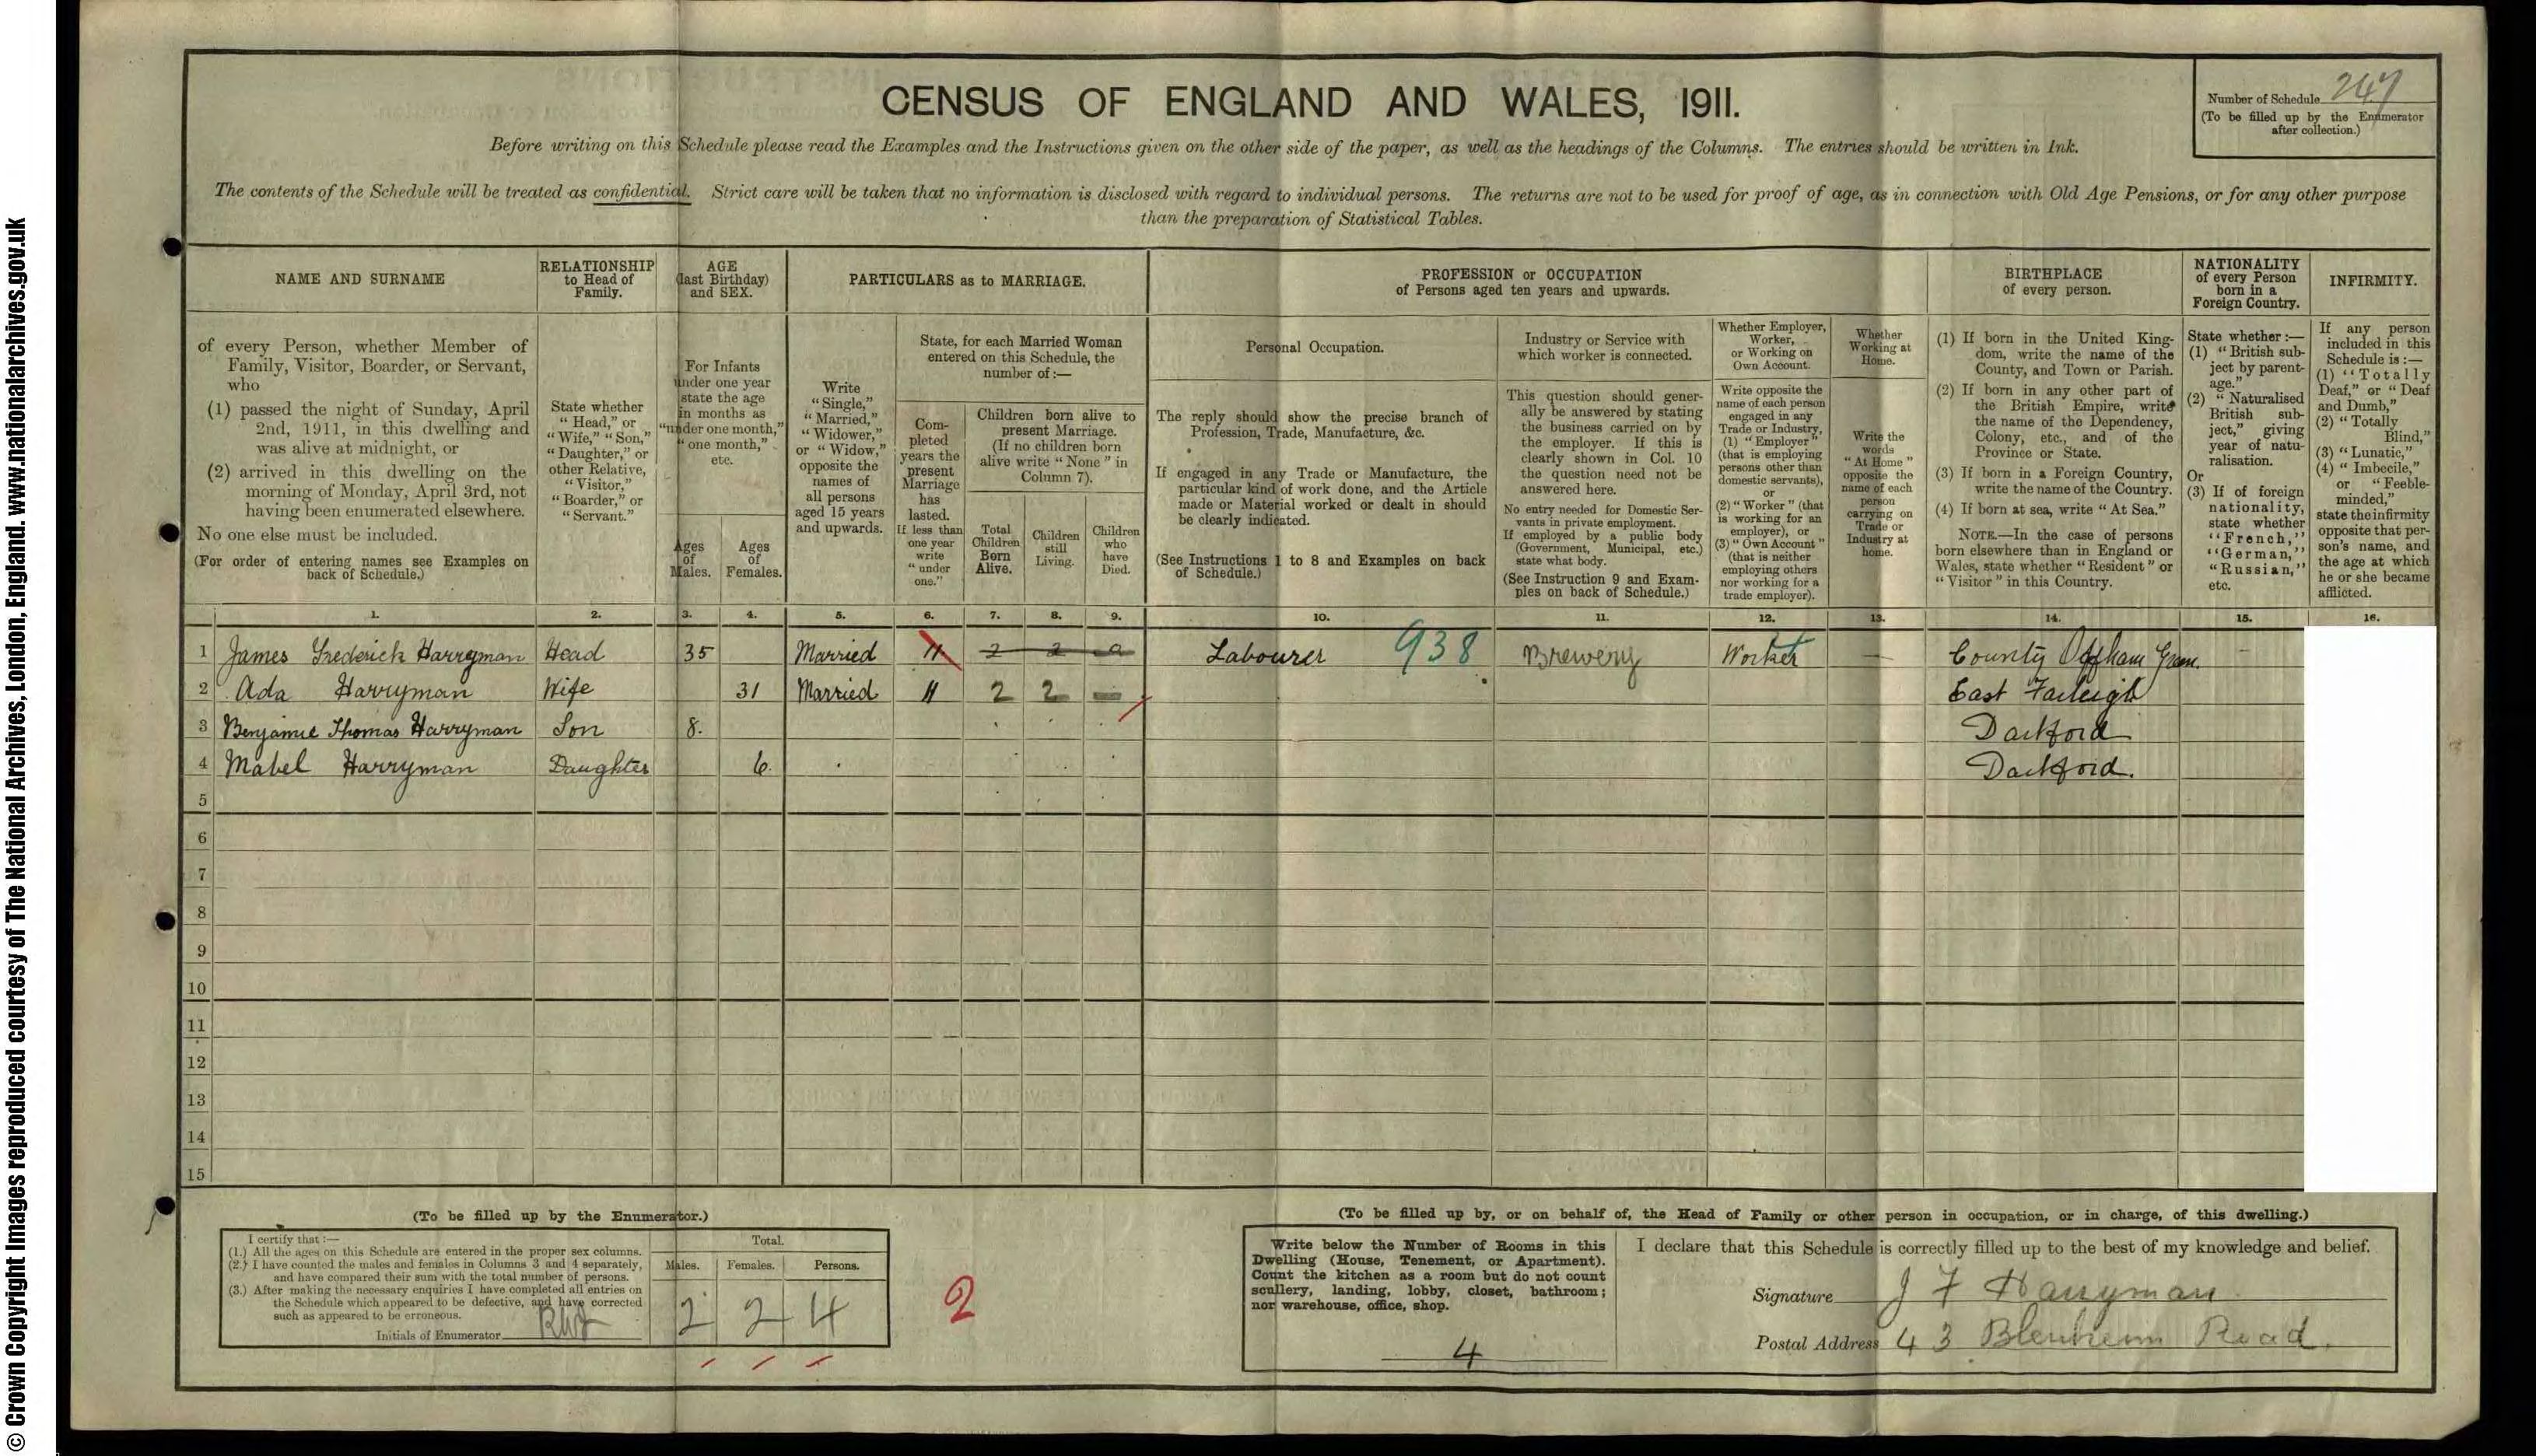 © Crown Copyright Images reproduced courtesy of The National Archives, London, England. www.nationalarchives.gov.uk
CENSUS OF ENGLAND AND WALES, 1911.
Number of Schedule 247
(To be filled up by the Enumerator
after collection.)
Before writing on this Schedule please read the Examples and the Instructions given on the other side of the paper, as well as the headings of the Columns. The entries should be written in Ink.
The contents of the Schedule will be treated as confidential. Strict care will be taken that no information is disclosed with regard to individual persons. The returns are not to be used for proof of age, as in connection with Old Age Pensions, or for any other purpose
than the preparation of Statistical Tables.
NAME AND SURNAME
of every Person, whether Member of
Family, Visitor, Boarder, or Servant,
who
(1) passed the night of Sunday, April
2nd, 1911, in this dwelling and
was alive at midnight, or
(2) arrived in this dwelling on the
morning of Monday, April 3rd, not
having been enumerated elsewhere.
No one else must be included.
(For order of entering names see Examples on
back of Schedule.)
RELATIONSHIP
to Head of
Family.
State whether
"Head," or
"Wife," "Son,"
"Daughter," or
other Relative,
"Visitor,"
"Boarder," or
"Servant."
AGE
(last Birthday)
and SEX.
For Infants
under one year
state the age
in months as
"under one month,"
"one month,"
etc.
Ages
of
Males.
Ages
of
Females.
PARTICULARS as to MARRIAGE.
Write
"Single,"
"Married,"
"Widower,"
or "Widow,"
opposite the
names of
all persons
aged 15 years
and upwards.
State, for each Married Woman
entered on this Schedule, the
number of:—
Com-
pleted
years the
present
Marriage
has
lasted.
If less than
one year
write
"under
one."
Children born alive to
present Marriage.
(If no children born
alive write "None" in
Column 7).
Total
Children
Born
Alive.
Children
still
Living.
Children
who
have
Died.
PROFESSION or OCCUPATION
of Persons aged ten years and upwards.
Personal Occupation.
The reply should show the precise branch of
Profession, Trade, Manufacture, &c.
If engaged in any Trade or Manufacture, the
particular kind of work done, and the Article
made or Material worked or dealt in should
be clearly indicated.
(See Instructions 1 to 8 and Examples on back
of Schedule.)
Industry or Service with
which worker is connected.
This question should gener-
ally be answered by stating
the business carried on by
the employer. If this is
clearly shown in Col. 10
the question need not be
answered here.
No entry needed for Domestic Ser-
vants in private employment.
If employed by a public body
(Government, Municipal, etc.)
state what body.
(See Instruction 9 and Exam-
ples on back of Schedule.)
Whether Employer,
Worker,
or Working on
Own Account.
Write opposite the
name of each person
engaged in any
Trade or Industry,
(1) "Employer"
(that is employing
persons other than
domestic servants),
or
(2) "Worker" (that
is working for an
employer), or
(3) "Own Account"
(that is neither
employing others
nor working for a
trade employer).
Whether
Working at
Home.
Write the
words
"At Home"
opposite the
name of each
person
carrying on
Trade or
Industry at
home.
BIRTHPLACE
of every person.
(1) If born in the United King-
dom, write the name of the
County, and Town or Parish.
(2) If born in any other part of
the British Empire, write
the name of the Dependency,
Colony, etc., and of the
Province or State.
(3) If born in a Foreign Country,
write the name of the Country.
(4) If born at sea, write "At Sea."
NOTE.—In the case of persons
born elsewhere than in England or
Wales, state whether "Resident" or
"Visitor" in this Country.
NATIONALITY
of every Person
born in a
Foreign Country.
State whether:—
(1) "British sub-
ject by parent-
age."
(2) "Naturalised
British sub-
ject," giving
year of natu-
ralisation.
Or
(3) If of foreign
nationality,
state whether
"French,"
"German,"
"Russian,"
etc.
INFIRMITY.
If any person
included in this
Schedule is:—
(1) "Totally
Deaf," or "Deaf
and Dumb,"
(2) "Totally
Blind,"
(3) "Lunatic,"
(4) "Imbecile,"
or "Feeble-
minded,"
state the infirmity
opposite that per-
son's name, and
the age at which
he or she became
afflicted.
1. 2. 3. 4. 5. 6. 7. 8. 9. 10. 11. 12. 13. 14. 15. 16.
1 James Frederick Harryman Head 35 Married 11 2 2 0 Labourer 938 Brewery Worker — County Offham Green. -
2 Ada Harryman Wife 31 Married 11 2 2 — East Farleigh
3 Benjamie Thomas Harryman Son 8. Dartford
4 Mabel Harryman Daughter 6. Dartford.
5
6
7
8
9
10
11
12
13
14
15
(To be filled up by the Enumerator.)
I certify that:—
(1.) All the ages on this Schedule are entered in the proper sex columns.
(2.) I have counted the males and females in Columns 3 and 4 separately,
and have compared their sum with the total number of persons.
(3.) After making the necessary enquiries I have completed all entries on
the Schedule which appeared to be defective, and have corrected
such as appeared to be erroneous.
Initials of Enumerator
Total.
Males. Females. Persons.
2 2 4
2
(To be filled up by, or on behalf of, the Head of Family or other person in occupation, or in charge, of this dwelling.)
Write below the Number of Rooms in this
Dwelling (House, Tenement, or Apartment).
Count the kitchen as a room but do not count
scullery, landing, lobby, closet, bathroom;
nor warehouse, office, shop.
4
I declare that this Schedule is correctly filled up to the best of my knowledge and belief.
Signature J F Harryman
Postal Address 43 Blenheim Road.